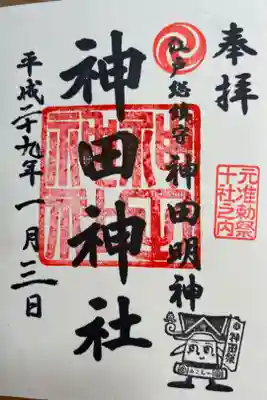 奉拝
元准勅祭
十社之内
江戸総鎮守 神田明神
神田神社
神田祭
平成二十九年一月三日